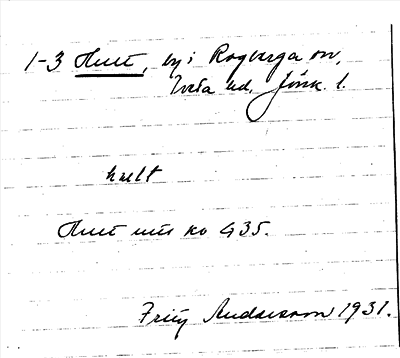 1-3 Hult, by i Rogberga sn,
Tveta hd, Jönk. l.
hult
Hult u ko 435.
Fritz Andersson 1931.